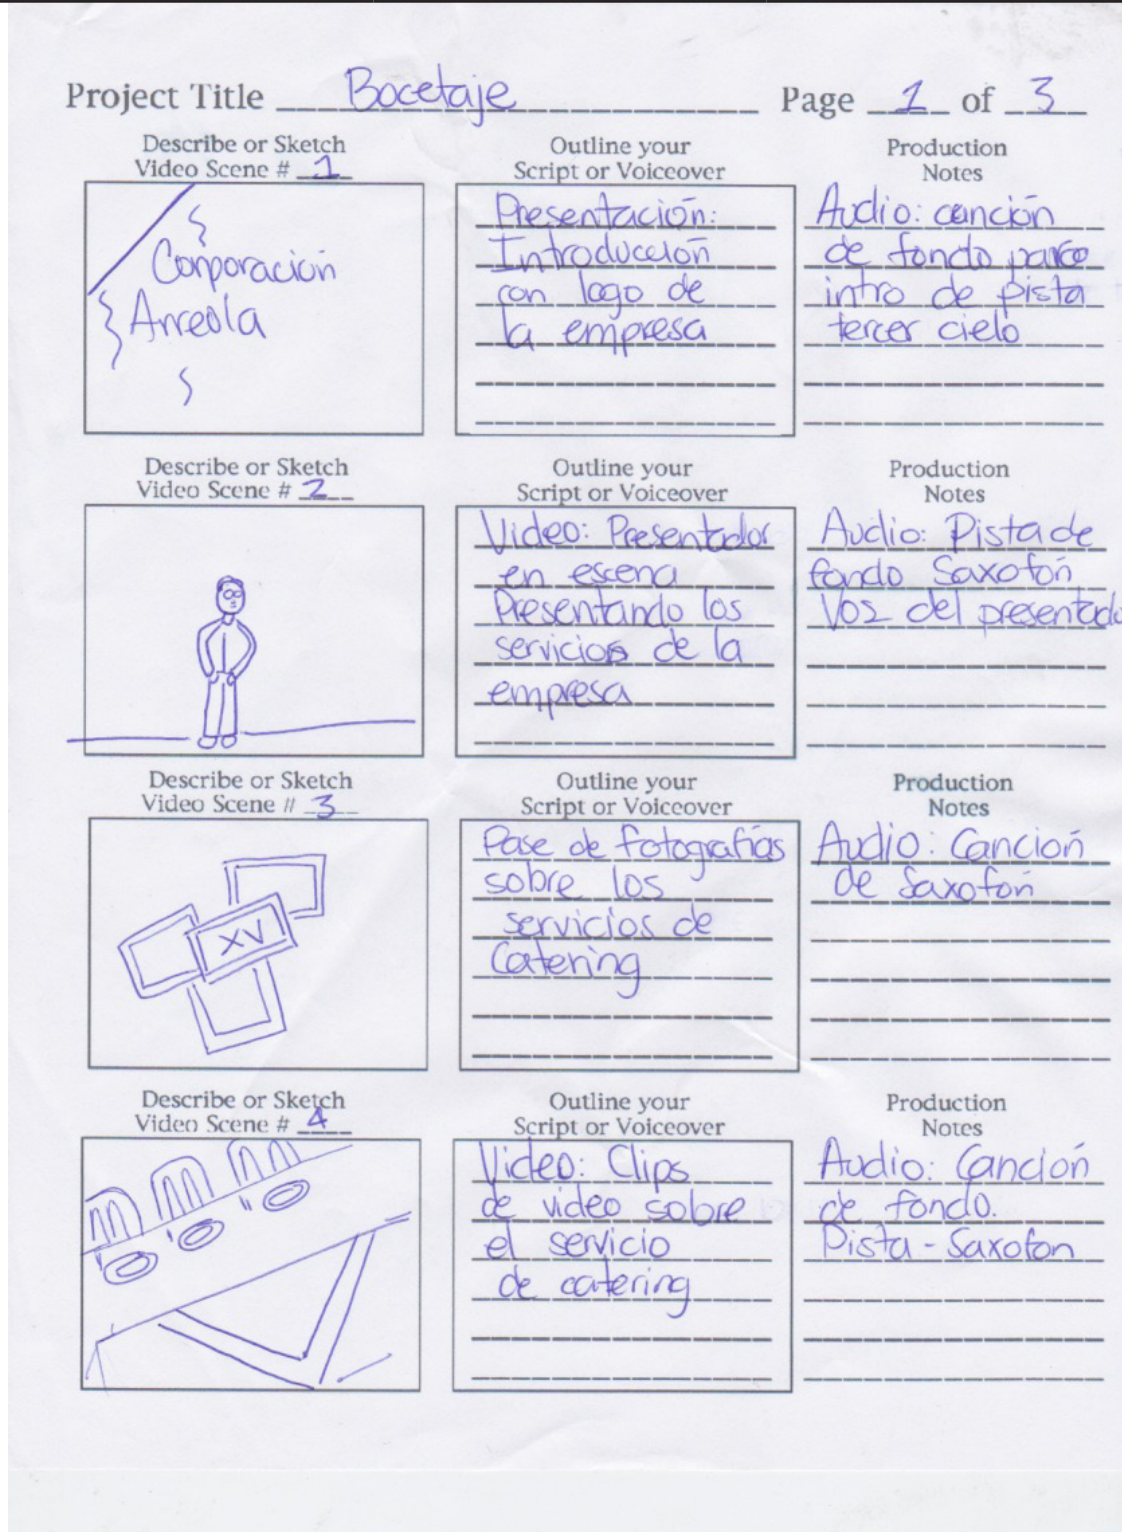 Project Title Bocetaje Page 1 of 3
Describe or Sketch
Video Scene # 1
Corporación
Arreola
Outline your
Script or Voiceover
Presentación:
Introducción
con logo de
la empresa
Production
Notes
Audio: canción
de fondo
intro de pista
tercer cielo
Describe or Sketch
Video Scene # 2
Outline your
Script or Voiceover
Video: Presentador
en escena
Presentando los
servicios de la
empresa
Production
Notes
Audio: Pista de
fondo Saxofón
Vos del presentado
Describe or Sketch
Video Scene # 3
XV
Outline your
Script or Voiceover
Pase de fotografías
sobre los
servicios de
Catering
Production
Notes
Audio: Canción
de Saxofón
Describe or Sketch
Video Scene # 4
Outline your
Script or Voiceover
Video: Clips
de video sobre
el servicio
de catering
Production
Notes
Audio: Canción
de fondo.
Pista - Saxofon